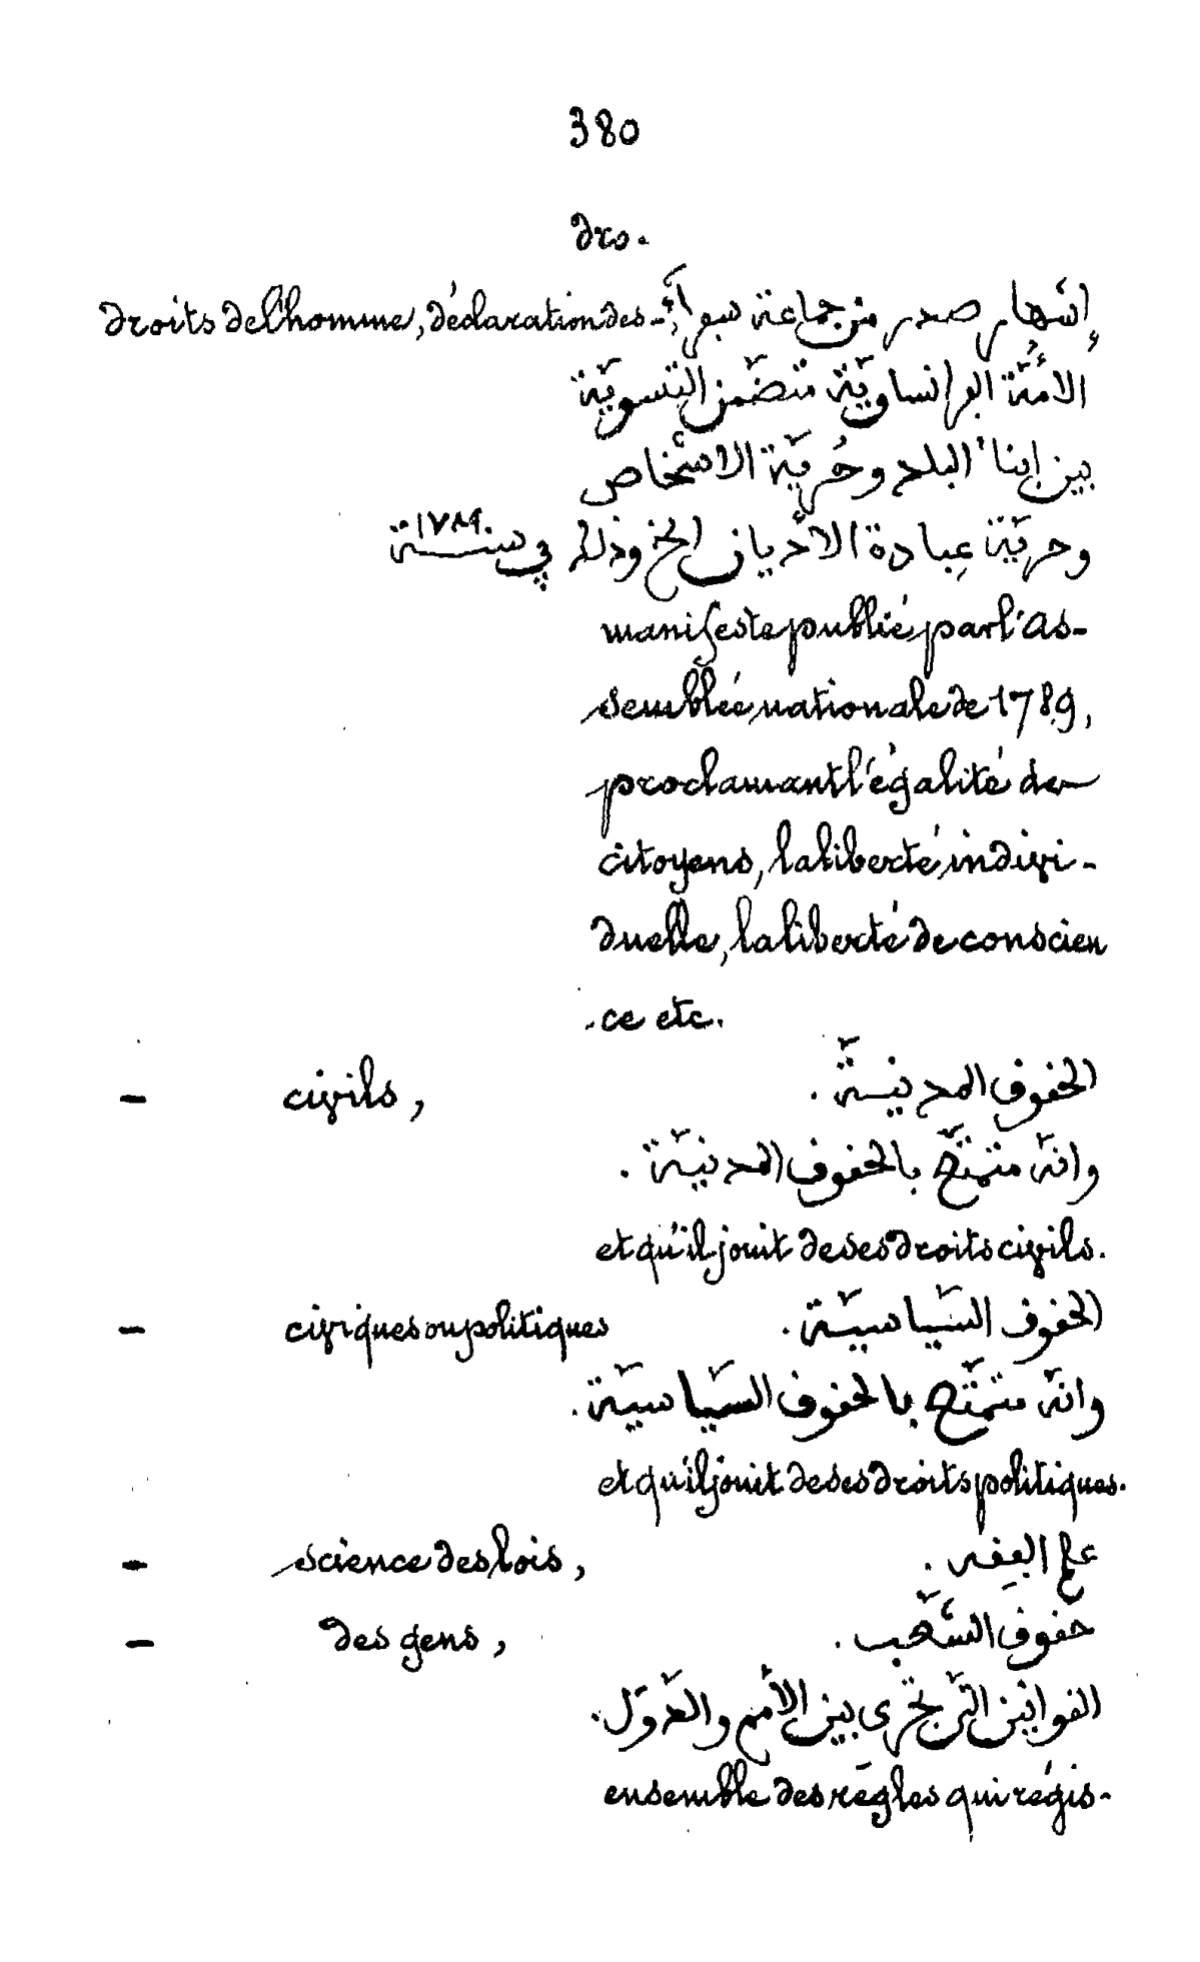 380
dro.
droits de l'homme, déclaration des - إشهار صدر من جماعة
الامّة الفرانساويّة متضمّن التسوية
بين ابناء البلد وحُرّيّة الاشخاص
وحرّيّة عِبادة الاديان الخ وذلك في سنة ١٧٨٩
manifeste publié par l'as-
semblée nationale de 1789,
proclamant l'égalité des
citoyens, la liberté indivi-
duelle, la liberté de conscien
-ce etc.
- civils, الحقوق المدنيّة .
وانّه متمتّع بالحقوق المدنيّة .
et qu'il jouit de ses droits civils.
- civiques ou politiques الحقوق السّياسيّة .
وانّه متمتّع بالحقوق السّياسيّة .
et qu'il jouit de ses droits politiques.
- science des lois, علم الفِقه .
- des gens, حقوق الشّعب .
القوانين التي تجري بين الأمم والدّول .
ensemble des règles qui régis-